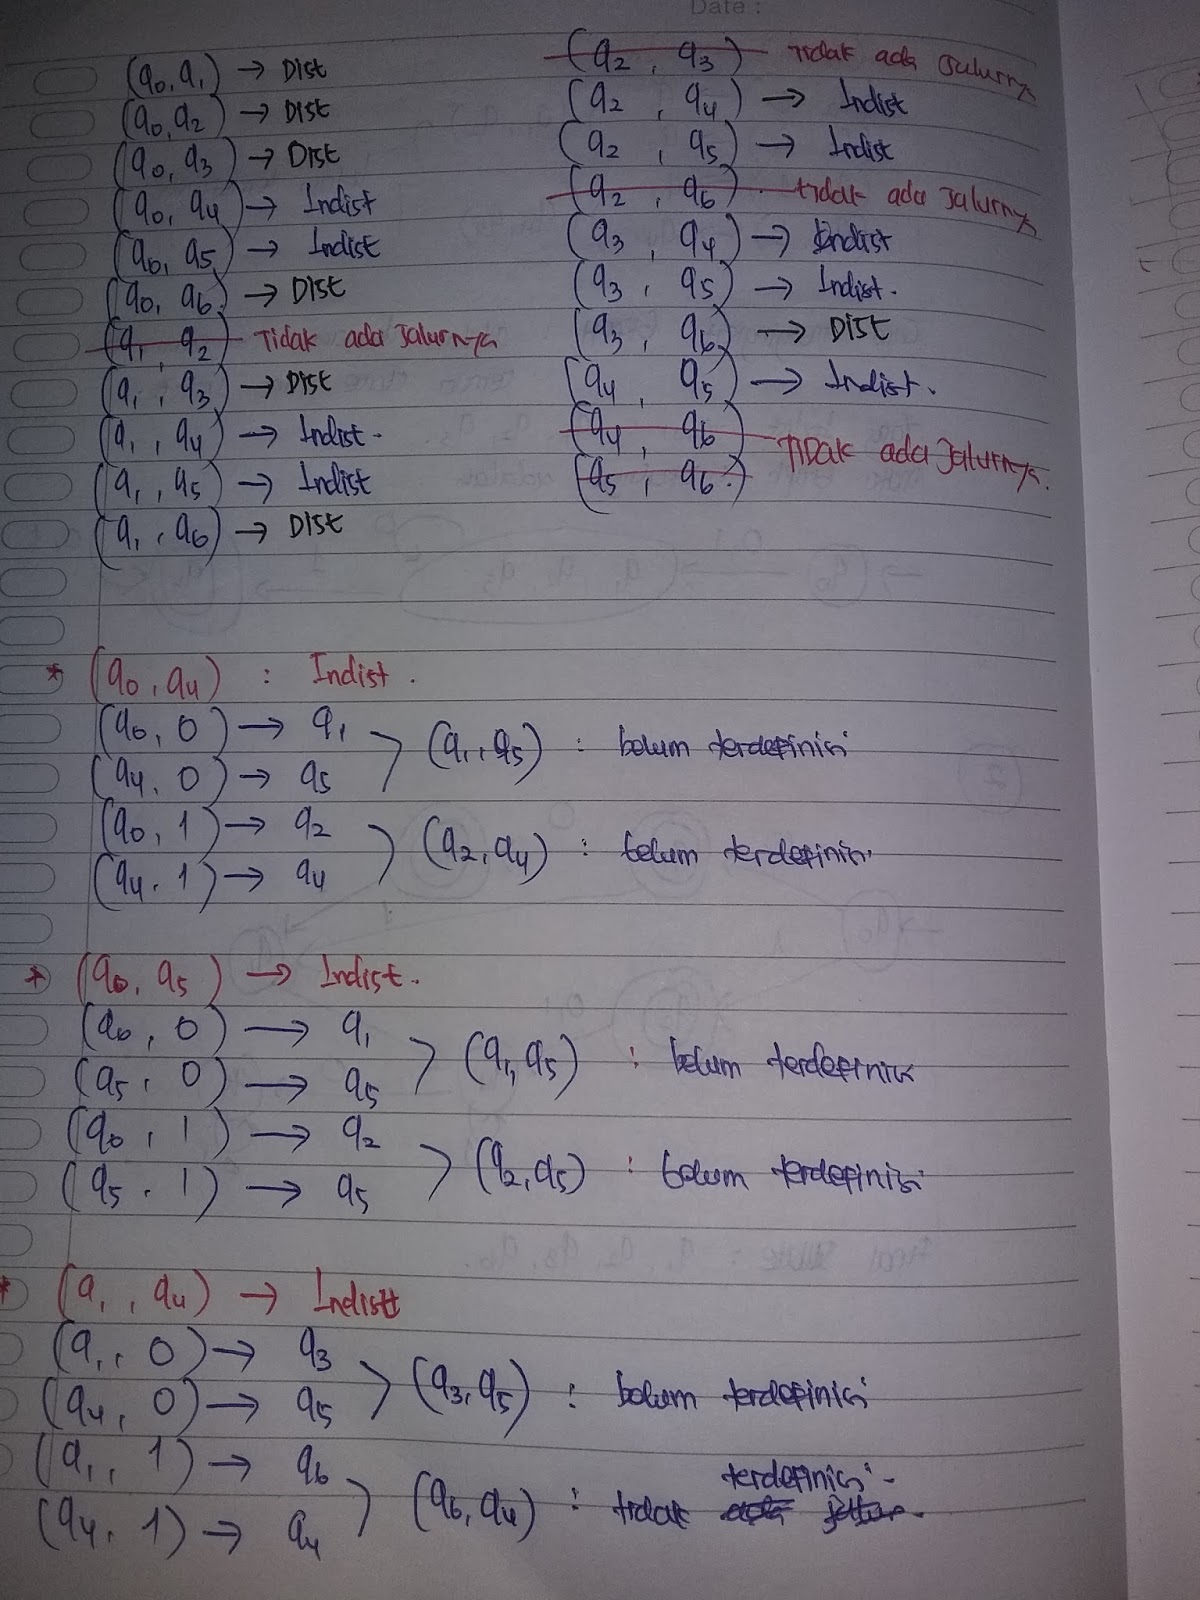 Date :
(q0, q1) → Dist
(q0, q2) → Dist
(q0, q3) → Dist
(q0, q4) → Indist
(q0, q5) → Indist
(q0, q6) → Dist
(q1, q2) Tidak ada Jalurnya
(q1, q3) → Dist
(q1, q4) → Indist.
(q1, q5) → Indist
(q1, q6) → Dist
(q2, q3) Tidak ada Jalurnya
(q2, q4) → Indist
(q2, q5) → Indist
(q2, q6) tidak ada Jalurnya
(q3, q4) → Indist
(q3, q5) → Indist.
(q3, q6) → Dist
(q4, q5) → Indist.
(q4, q6)
(q5, q6) Tidak ada Jalurnya.
* (q0, q4) : Indist.
(q0, 0) → q1
(q4, 0) → q5 > (q1, q5) : belum terdefinisi
(q0, 1) → q2
(q4, 1) → q4 > (q2, q4) : belum terdefinisi
* (q0, q5) → Indist.
(q0, 0) → q1
(q5, 0) → q5 > (q1, q5) : belum terdefinisi
(q0, 1) → q2
(q5, 1) → q5 > (q2, q5) : belum terdefinisi
* (q1, q4) → Indist
(q1, 0) → q3
(q4, 0) → q5 > (q3, q5) : belum terdefinisi
(q1, 1) → q6
(q4, 1) → q4 > (q6, q4) : tidak terdefinisi